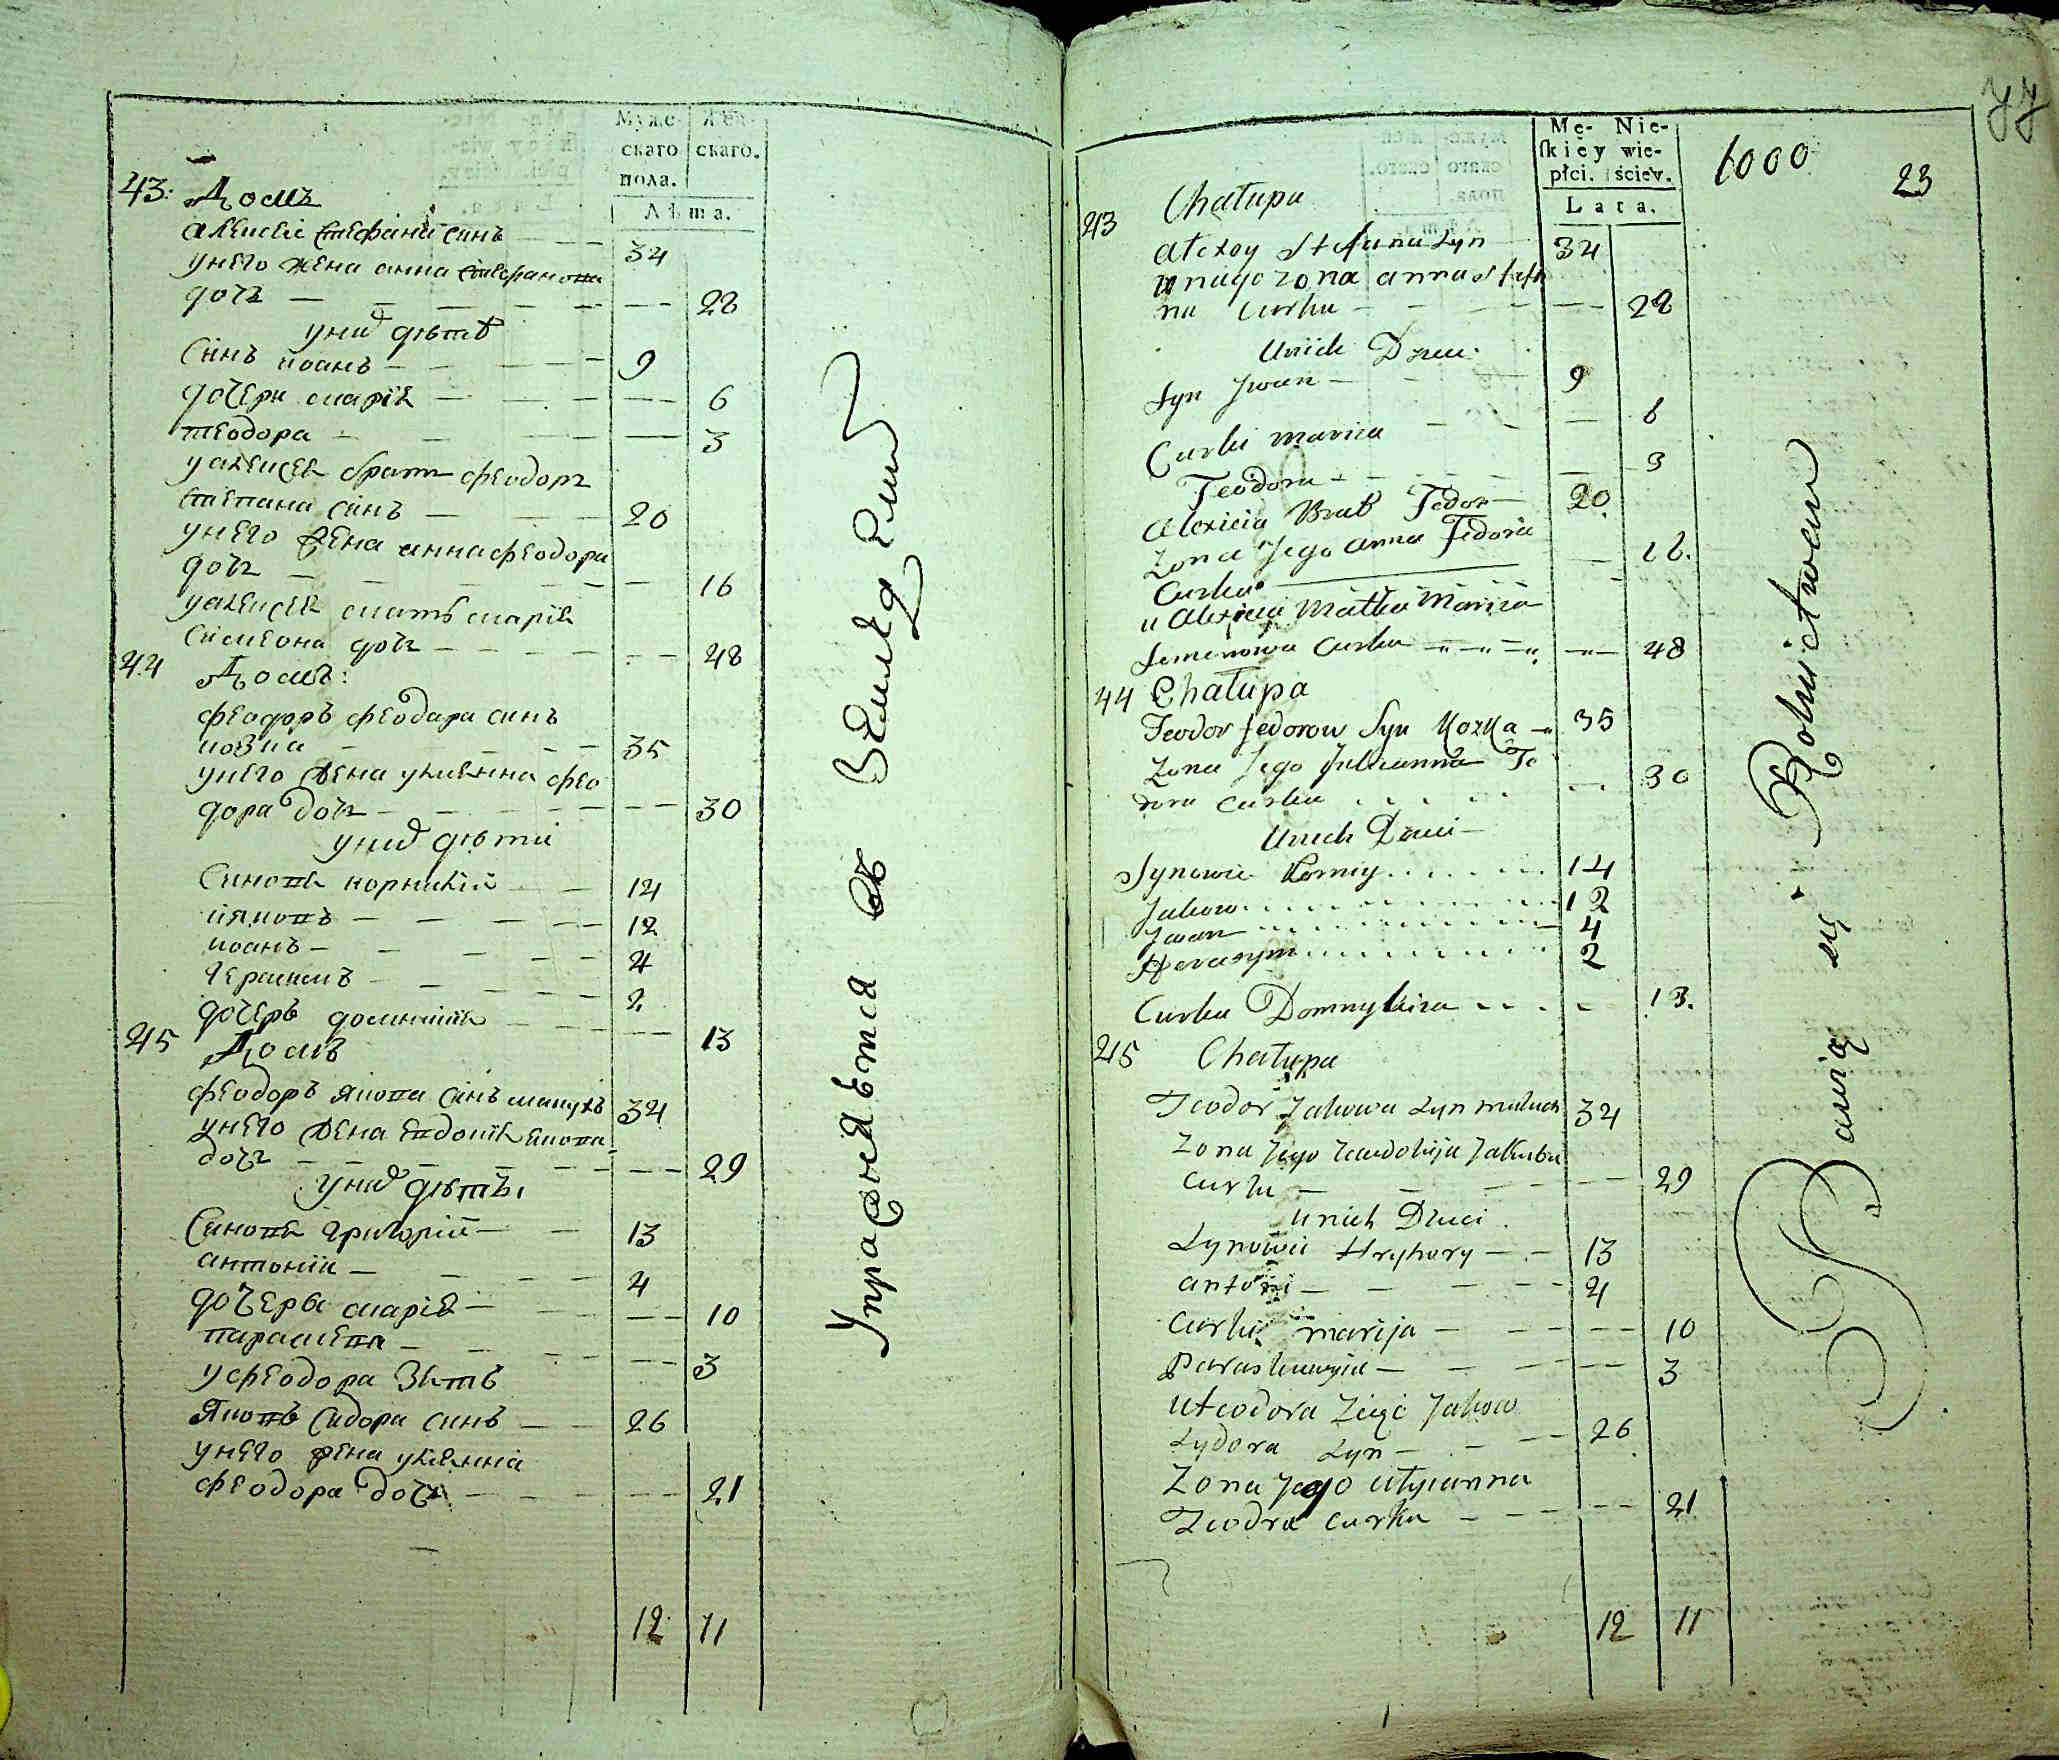 Мужескаго пола. Женскаго.
Лѣта.
43: Домъ
алексеіе стефана синъ 34
унего жена анна стефанова
дочь 22
уних дѣтѣ
Синъ иоанъ 9
дочери мариѣ 6
теодора 3
уалексея братъ феодоръ
степана синъ 20
унего жена анна феодора
дочь 16
уалексея мать мария
симеона дочь 48
44 Домъ:
феодоръ феодара синъ
козка 35
унего жена улиянна фео
дора дочь 30
уних дѣти
Синовя корнилій 14
ияковъ 12
иоанъ 4
герасимъ 2
дочерь 13
45 Домъ
феодоръ якова синъ 34
унего жена евдокия якова
дочь 29
уних дѣтѣ
Синовя григорій 13
антоній 4
дочери мария 10
параскева 3
уфеодора зять
Яковъ Сидора синъ 26
унего жена улиянна
феодора дочь 21
12 11
Упражнѣются въ Земледелии
77
Mę- Nie-
skiey wie-
płci. ściey.
Lata.
1000 23
43 Chałupa
Alexey Stefana Syn 34
unieho zona anna Stefa
na Curka 22
Unich Dzieci
Syn Jwan 9
Curki marya 6
Teodora 3
Alexieia Brat Fedor 20
Zona Jego Anna Fedora
Curka 16.
u Alexieia Matka Maria
Semenowa Curka 48
44 Chałupa
Teodor Fedorow Syn Kozka 35
Zona Jego Julianna Te
dora curka 30
Unich Dzieci
Synowie Korniy 14
Jakow 12
Jwan 4
Herasym 2
Curka Domnykia 13.
45 Chałupa
Teodor Jakowa Syn 34
Zona Jego Jewdokija Jakuba
Curka 29
unich Dzieci
Synowie Hryhory 13
antoni 4
Curki marija 10
Paraskewija 3
uteodora Zięć Jakow
Sydora Syn 26
Zona Jego Ulyanna
Teodra curka 21
12 11
Bawią się Rolnictwem